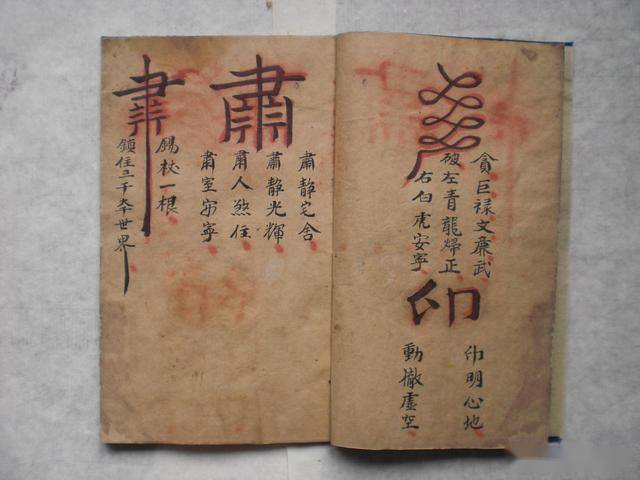 貪巨禄文廉武
破左青龍帰正
右白虎安寧
印
印明心地
動撤虛空
肅
肅靜宅舍
肅靜光輝
肅人煞住
肅室安寧
錫杖一根
鎮住三千大千世界